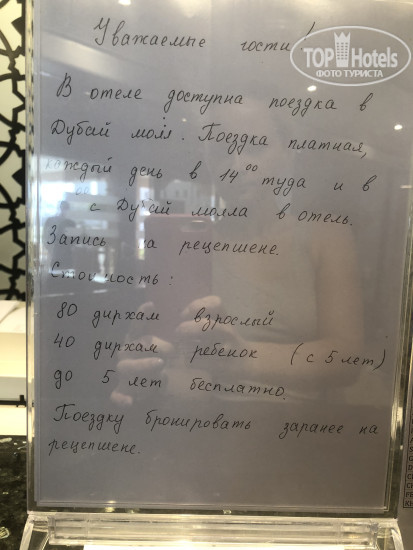 Уважаемые гости!
TOPHotels
ФОТО ТУРИСТА
В отеле доступна поездка в
Дубай молл. Поездка платная,
каждый день в 14⁰⁰ туда и в
с Дубай молла в отель.
Запись на рецепшене.
Стоимость:
80 дирхам взрослый
40 дирхам ребенок (с 5 лет)
до 5 лет бесплатно.
Поездку бронировать заранее на
рецепшене.